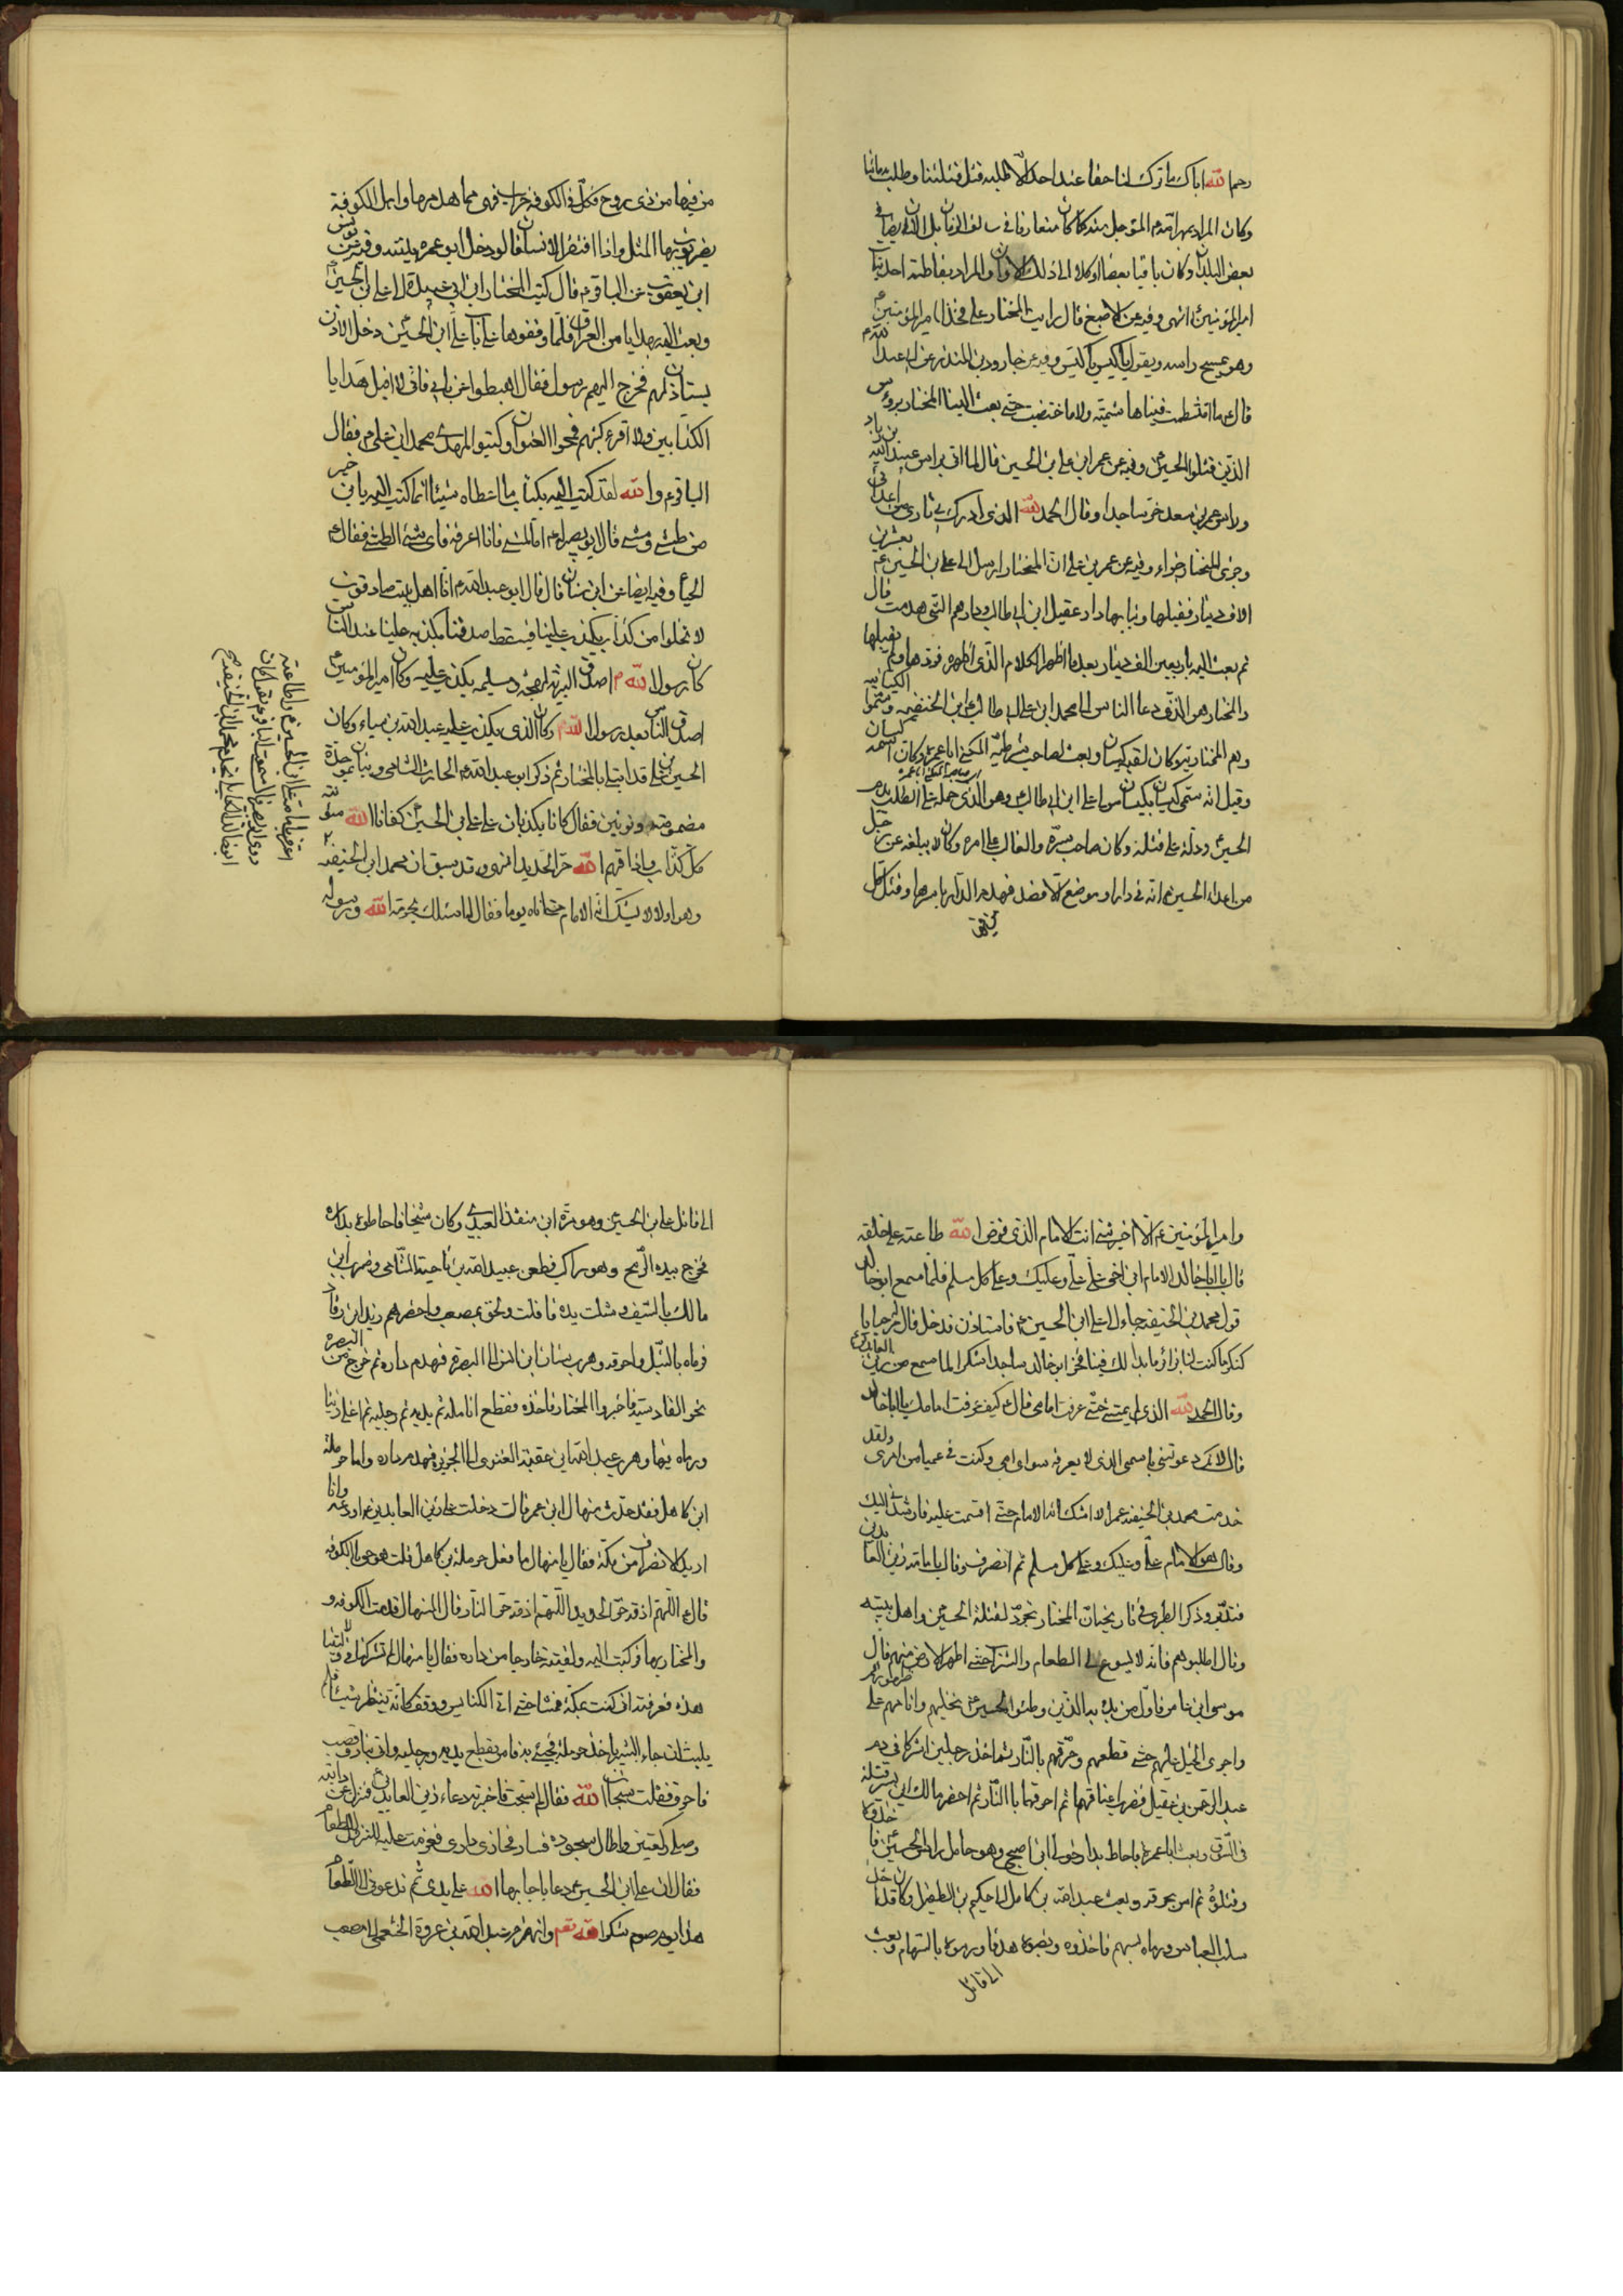 رحم الله اباك ما ترك لنا حقا عند احد الا طلبه قتل قتلتنا وطلب بدمائنا
وكان المراد بمهر امته م المؤجل منه كما كان متعارفا في سالف الزمان بل الان ايضا في
بعض البلدان وكان باقيا بعضا او كلا الى ذلك الاوان والمراد بفاطمة احد بنات
امير المؤمنين ع انتهى وفيه عن الاصبغ قال رايت المختار على فخذ امير المؤمنين ع
وهو يمسح راسه ويقول يا كيس يا كيس وفيه عن جارود بن المنذر عن ابي عبد الله ع
قال ما امتشطت فينا هاشمية ولا اختضبت حتى بعث الينا المختار برؤس
الذين قتلوا الحسين ع وفيه عن عمر ابن علي ابن الحسين قال لما اتي براس عبيد الله بن زياد
وراس عمر بن سعد خر ساجدا وقال الحمد لله الذي ادرك لي ثاري من اعدائي
وجزى المختار خيرا وفيه عن عمر بن علي ان المختار ارسل الى علي ابن الحسين ع بعشرين
الاف دينار فقبلها وبنا بها دار عقيل ابن ابي طالب ودارهم التي هدمت قال
ثم بعث اليه باربعين الف دينار بعد ما اظهر الكلام الذي اظهره فردها ولم يقبلها
والمختار هو الذي دعا الناس الى محمد ابن علي ابي طالب ابن الحنفيه وسموا الكيسانيه
وهم المختاريه وكان لقبه كيسان وبعث لصاحب شرطته المكنى ابا عمره وكان اسمه كيسان
وقيل انه سمي كيسان بكيسان مولى علي ابن ابي طالب وهو الذي حمله على الطلب بدم
الحسين ع ودله على قتلته وكان صاحب سره والغالب على امره وكان لا يبلغه عن رجل
من اعداء الحسين ع انه في دار او موضع الا قصد فهدم الدار باسرها وقتل كل
من فيها
من فيها من ذي روح فكل دار في الكوفه خراب فهي مما هدمها واهل الكوفة
يضربون بها المثل واذا افتقر الانسان قالوا دخل ابو عمره بيته وفيه عن يونس
ابن يعقوب عن الباقر م قال كتب المختار ابن ابي عبيدة الى علي ابن الحسين ع
وبعث اليه بهدايا من العراق فلما وقفوا على باب علي ابن الحسين دخل الاذن
يستاذن لهم فخرج اليهم رسول فقال اميطوا عن بابي فاني لا اقبل هدايا
الكذابين ولا اقرء كتبهم فمحوا العنوان وكتبوا للمهدي محمد ابن علي م فقال
الباقر ع والله لقد كتب اليه بكتاب ما اعطاه شيئا انما كتب اليه يا ابن خير
من طشى ومشى قال ابو بصير اما المشي فانا اعرفه فاي شيء الطشي فقال ع
الحياة وفيه ايضا عن ابن سنان قال قال ابو عبد الله م انا اهل بيت صادقون
لا نخلوا من كذاب يكذب علينا فيسقط صدقنا بكذبه علينا عند الناس
كان رسول الله ص اصدق البرية لهجة ومسيلمه يكذب عليه وكان امير المؤمنين ع
اصدق الناس بعد رسول الله ص وكان الذي يكذب عليه عبد الله بن سباء وكان
الحسين بن علي قد ابتلي بالمختار ثم ذكر ابو عبد الله م الحارث الشامي وبنان بموحدة
مضمومة ونونين فقال كانا يكذبان على علي ابن الحسين ع كفانا الله مؤنة
كل كذاب واذاقهم الله حر الحديد انتهى وقد سبق ان محمد ابن الحنفيه
وهو اولا لا يشك انه الامام حتى اتاه يوما فقال له اسئلك بحرمة الله ورسوله
وامير المؤمنين ع الا اخبرتني انت الامام الذي فرض الله طاعته على خلقه
قال يا ابا خالد الامام ابن اخي علي علي وعليك وعلى كل مسلم فلما سمع ابو خالد
قول محمد بن الحنفيه جاء الى علي ابن الحسين ع فاستاذن فدخل قال مرحبا يا
كنكر ما كنت لنا بزائر ما بدا لك فينا فخر ابو خالد ساجدا شكرا لما سمع من زين العابدين ع
وقال الحمد لله الذي لم يمتني حتى عرفت امامي قال ع كيف عرفت امامك يا ابا خالد
قال لانك دعوتني باسمي الذي لا يعرفه سوى امي وكنت في عمياء من امري ولقد
خدمت محمد بن الحنفيه عمرا لا اشك انه الامام حتى اقسمت عليه فارشدني اليك
وقال هو الامام علي وعليك وعلى كل مسلم ثم انصرف وقال بامامة زين العابدين
فتدبر وذكر الطبري في تاريخه ان المختار تجرد لقتلة الحسين ع واهل بيته
وقال اطلبوهم فانه لا يسوغ لي الطعام والشراب حتى اطهر الارض منهم قال
موسى ابن عامر فاول من بدء به الذين وطئوا الحسين ع بخيلهم وانامهم على ظهورهم
واجرى الخيل عليهم حتى قطعهم وحرقهم بالنار ثم اخذ رجلين اشتركا في دم
عبد الرحمن بن عقيل فضرب اعناقهما ثم احرقهما بالنار ثم احضر مالك ابن بشير فقتله
في السوق وبعث ابا عمره فاحاط بدار خولي ابن اصبحي وهو حامل راس الحسين ع فاخذوه
وقتلوه ثم امر بحرقه وبعث عبد الله بن كامل الى حكيم بن الطفيل وكان قد اخذ
سلب العباس ورماه بسهم فاخذوه ونصبوه هدفا ورموه بالسهام وبعث
الى قاتل
الى قاتل علي ابن الحسين ع وهو مرة ابن منقذ العبدي وكان شيخا فاحاطوا بداره
فخرج بيده الرمح وهو راكب فطعن عبيد الله بن ناجية الشامي وضربه ابن
مالك بالسيف وشلت يده فافلت ولحق بمصعب واحضرهم زيد ابن رقاد
فرماه بالنبل واحرقه وهرب سنان ابن انس الى البصرة فهدم داره ثم خرج من البصره
نحو القادسيه فاخبروا المختار فاخذه فقطع انامله ثم يديه ثم رجليه ثم اغلى زيتا
ورماه فيها وهرب عبد الله ابن عقبة الغنوي الى الجزيره فهدم داره واما حرمله
ابن كاهل فقد حدث منهال ابن عمر قال دخلت على زين العابدين ع اودعه وانا
اريد الانصراف من مكة فقال يا منهال ما فعل حرملة بن كاهل قلت هو حي بالكوفه
قال ع اللهم اذقه حر الحديد اللهم اذقه حر النار قال المنهال قدمت الكوفه و
والمختار بها فركبت اليه ولقيته خارجا من داره فقال يا منهال لم تشركنا في ولايتنا
هذه فعرفته اني كنت بمكة فمشا حتى اتى الكناس ووقف كانه ينتظر شيئا فلم
يلبث ان جاء البشير باخذ حرملة فجيئ به فامر بقطع يديه ورجليه واتي بنار وقصب
فاحرق فقلت سبحان الله فقال لم سبحت فاخبرته بدعاء زين العابدين ع فنزل عن دابته
وصلى ركعتين واطال سجوده فسار فحاذى داري فعزمت عليه للنزول الى الطعام
فقال ان علي ابن الحسين ع دعا باجابتها الله على يدي ثم تدعوني الى الطعام
هذا يوم صوم شكرا لله تعم وانهزم عبد الله بن عروة الخثعمي الى مصعب